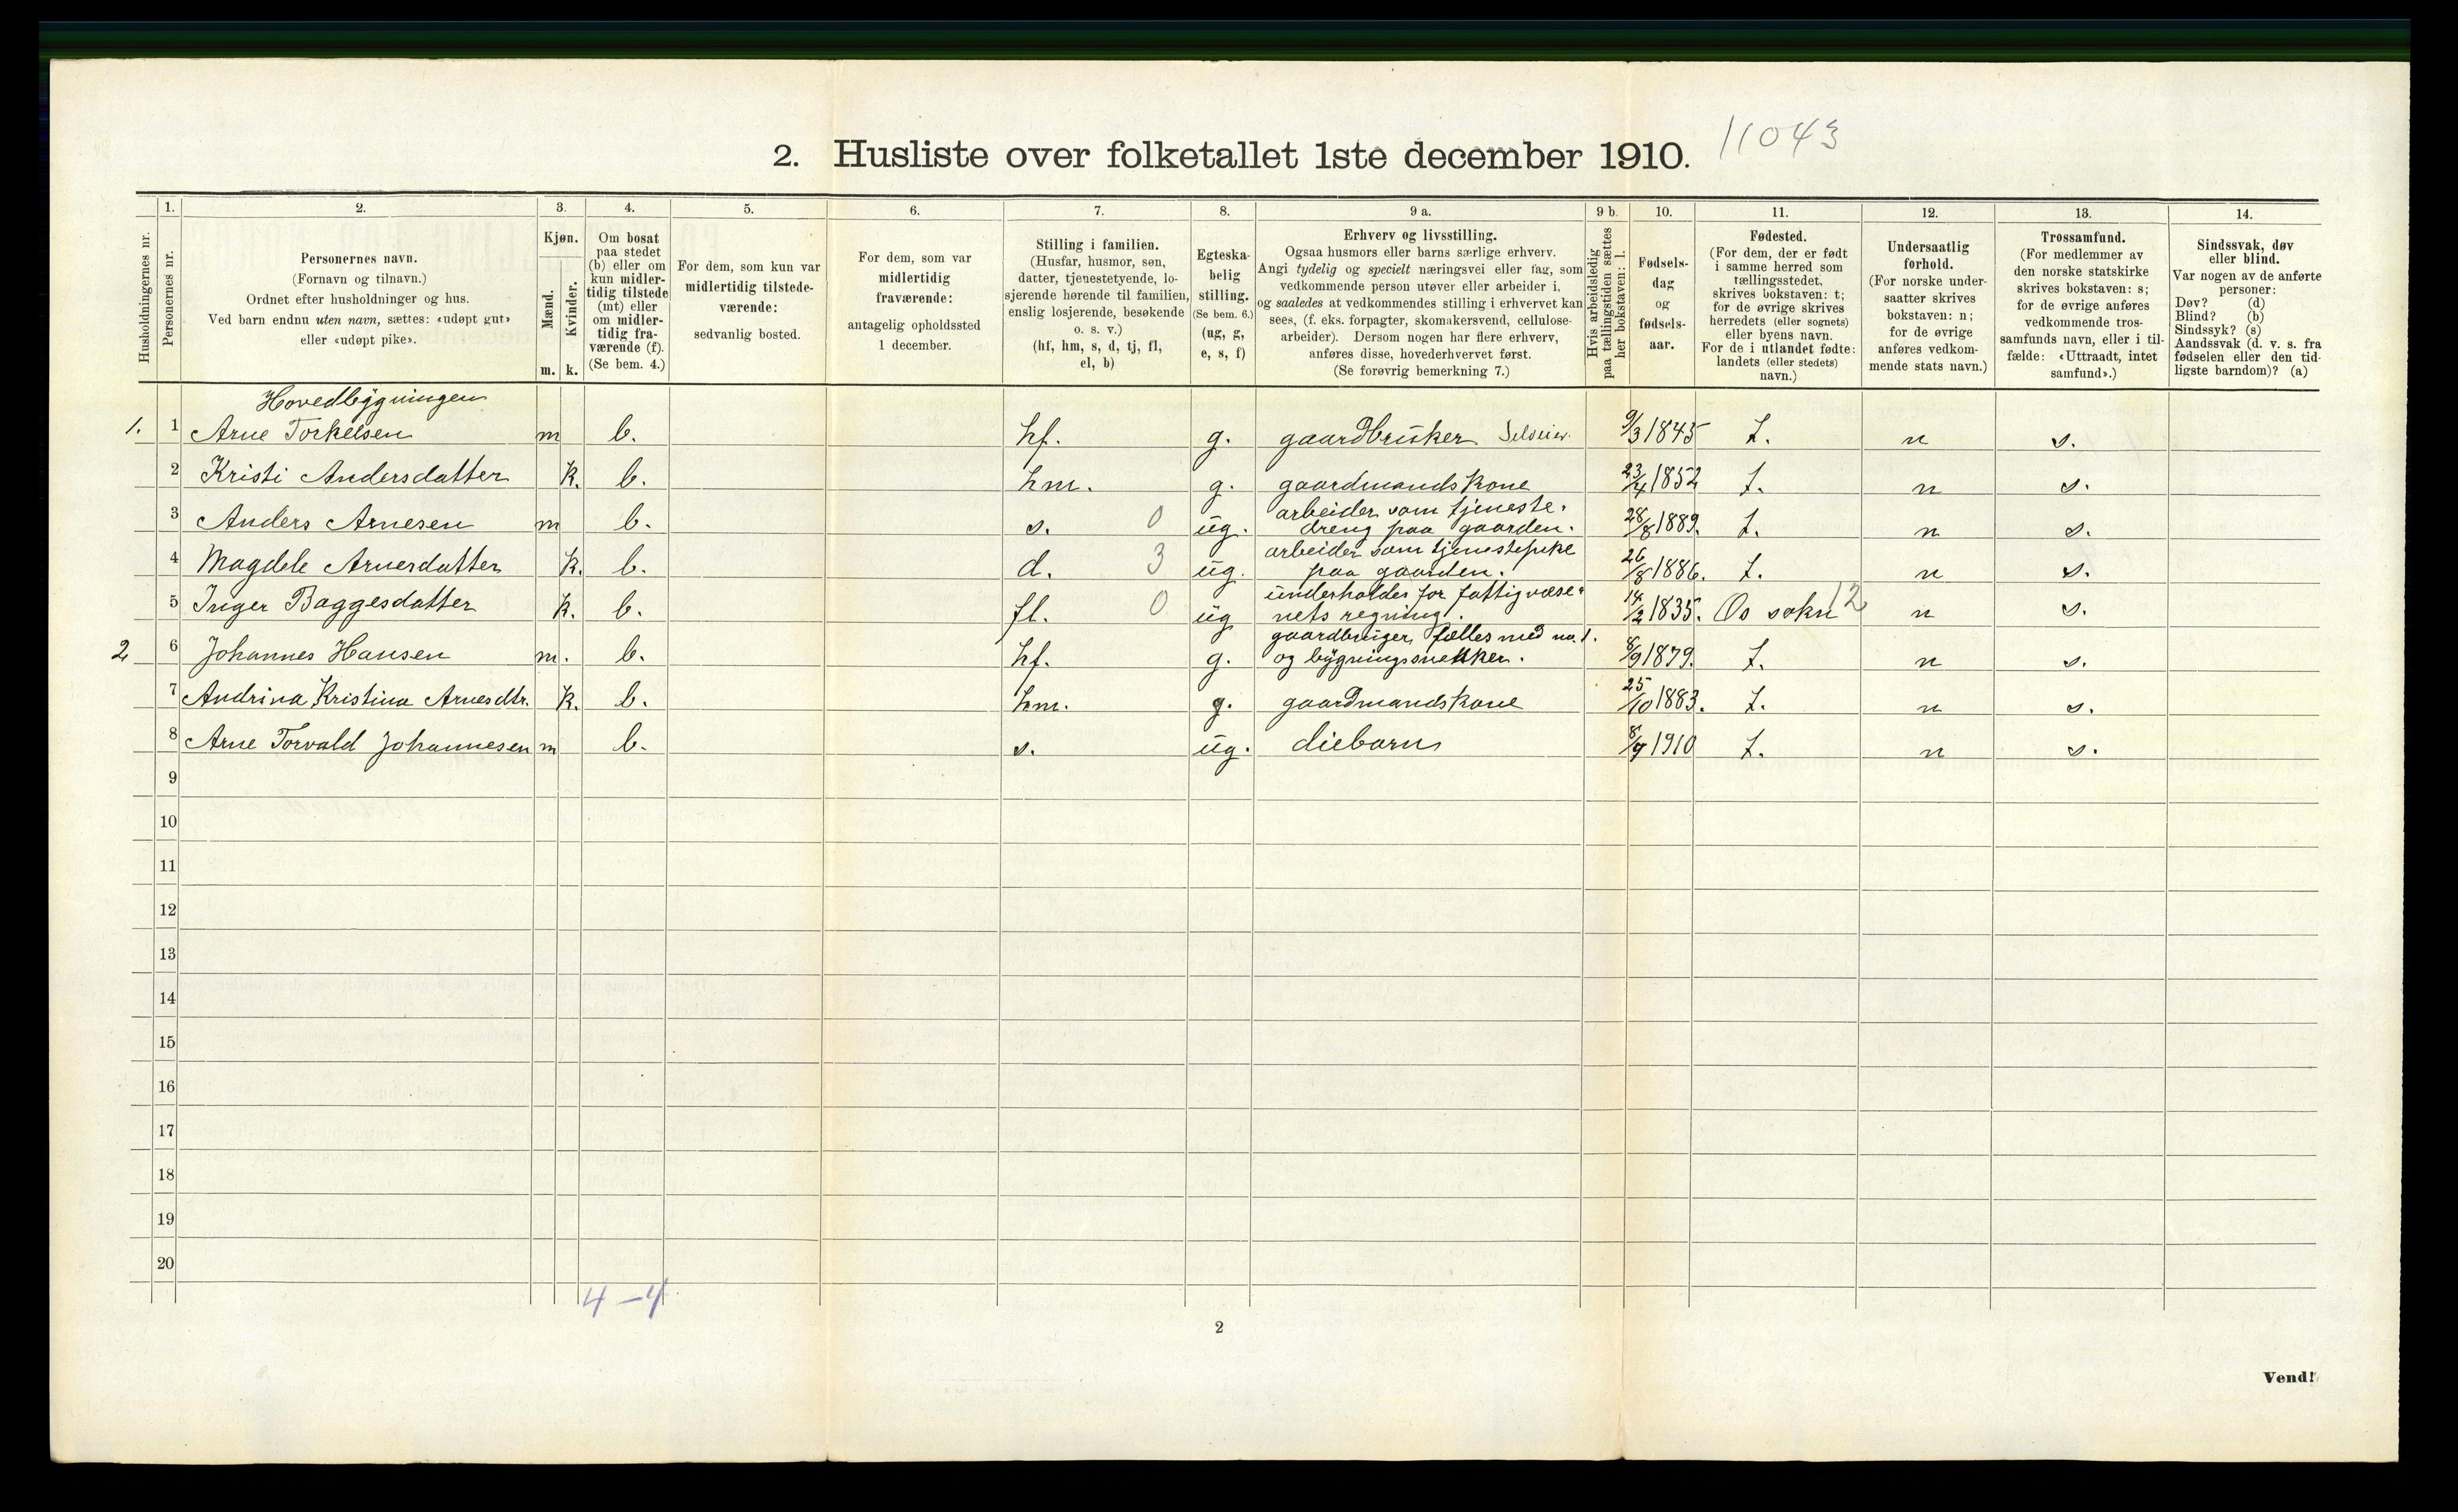 2. Husliste over folketallet 1ste december 1910. 11043
Husholdningernes nr.
1.
Personernes nr.
2.
Personernes navn.
(Fornavn og tilnavn.)
Ordnet efter husholdninger og hus.
Ved barn endnu uten navn, sættes: «udøpt gut»
eller «udøpt pike».
3.
Kjøn.
Mænd.
Kvinder.
m. k.
4.
Om bosat
paa stedet
(b) eller om
kun midler-
tidig tilstede
(mt) eller
om midler-
tidig fra-
værende (f).
(Se bem. 4.)
5.
For dem, som kun var
midlertidig tilstede-
værende:
sedvanlig bosted.
6.
For dem, som var
midlertidig
fraværende:
antagelig opholdssted
1 december.
7.
Stilling i familien.
(Husfar, husmor, søn,
datter, tjenestetyende, lo-
sjerende hørende til familien,
enslig losjerende, besøkende
o. s. v.)
(hf, hm, s, d, tj, fl,
el, b)
8.
Egteska-
belig
stilling.
(Se bem. 6.)
(ug, g,
e, s, f)
9 a.
Erhverv og livsstilling.
Ogsaa husmors eller barns særlige erhverv.
Angi tydelig og specielt næringsvei eller fag, som
vedkommende person utøver eller arbeider i,
og saaledes at vedkommendes stilling i erhvervet kan
sees, (f. eks. forpagter, skomakersvend, cellulose-
arbeider). Dersom nogen har flere erhverv,
anføres disse, hovederhvervet først.
(Se forøvrig bemerkning 7.)
9 b.
Hvis arbeidsledig
paa tællingstiden sættes
her bokstaven: l.
10.
Fødsels-
dag
og
fødsels-
aar.
11.
Fødested.
(For dem, der er født
i samme herred som
tællingsstedet,
skrives bokstaven: t;
for de øvrige skrives
herredets (eller sognets)
eller byens navn.
For de i utlandet fødte:
landets (eller stedets)
navn.)
12.
Undersaatlig
forhold.
(For norske under-
saatter skrives
bokstaven: n;
for de øvrige
anføres vedkom-
mende stats navn.)
13.
Trossamfund.
(For medlemmer av
den norske statskirke
skrives bokstaven: s;
for de øvrige anføres
vedkommende tros-
samfunds navn, eller i til-
fælde: «Uttraadt, intet
samfund».)
14.
Sindssvak, døv
eller blind.
Var nogen av de anførte
personer:
Døv? (d)
Blind? (b)
Sindssyk? (s)
Aandssvak (d. v. s. fra
fødselen eller den tid-
ligste barndom)? (a)
Hovedbygningen
1. 1 Arne Torkelsen m b. hf. g. gaardbruker Selveier. 9/3 1845 t. n s.
2 Kristi Andersdatter k. b. hm. g. gaardmandskone 23/4 1852 t. n s.
3 Anders Arnesen m b. s. 0 ug. arbeider som tjeneste-
dreng paa gaarden. 28/8 1889. t. n s.
4 Magdele Arnesdatter k. b. d. 3 ug. arbeider som tjenestepike
paa gaarden. 26/8 1886. t. n s.
5 Inger Baggesdatter k. b. fl. 0 ug underholdes for fattigvæse-
nets regning. 14/2 1835. Os sokn 12 n s.
2 6 Johannes Hansen m. b. hf. g. gaardbruger, fælles med no. 1.
og bygningssnekker. 8/9 1879. t. n s.
7 Andrina Kristina Arnesdtr. k. b. hm. g. gaardmandskone 25/10 1883. t. n s.
8 Arne Torvald Johannesen m b. s. ug. diebarn 8/9 1910 t. n s.
9
10
11
12
13
14
15
16
17
18
19
20
4 – 4
2
Vend!